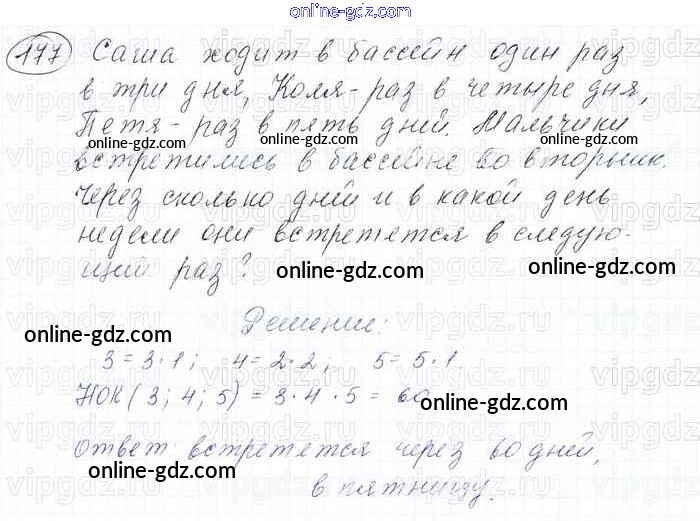 online-gdz.com
177 Саша ходит в бассейн один раз
в три дня, Коля - раз в четыре дня,
Петя - раз в пять дней. Мальчики
встретились в бассейне во вторник.
Через сколько дней и в какой день
недели они встретятся в следую-
щий раз?
online-gdz.com
online-gdz.com
online-gdz.com
Решение:
3 = 3·1; 4 = 2·2; 5 = 5·1.
НОК (3; 4; 5) = 3·4·5 = 60
online-gdz.com
Ответ: встретятся через 60 дней,
online-gdz.com
online-gdz.com
в пятницу.